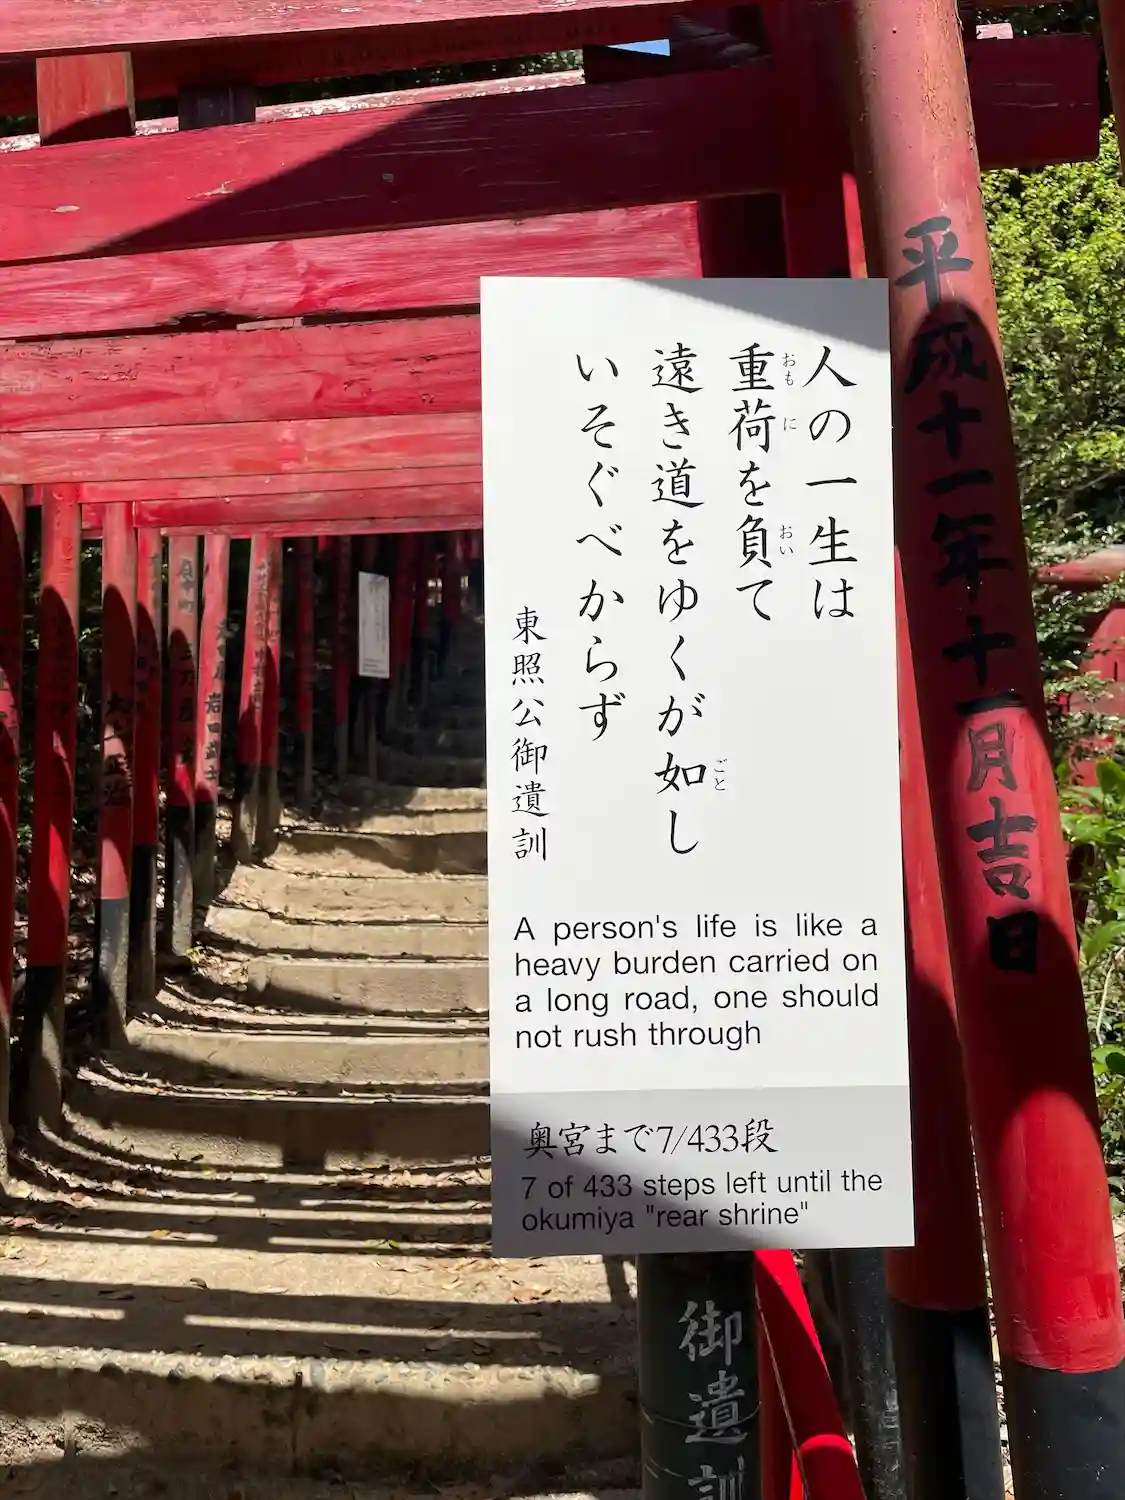 人の一生は
重荷を負て
おも
に
おい
遠き道をゆくが如し
ごと
いそぐべからず
東照公御遺訓
A person's life is like a
heavy burden carried on
a long road, one should
not rush through
奥宮まで7/433段
7 of 433 steps left until the
okumiya "rear shrine"
平成十一年十一月吉日
御遺訓